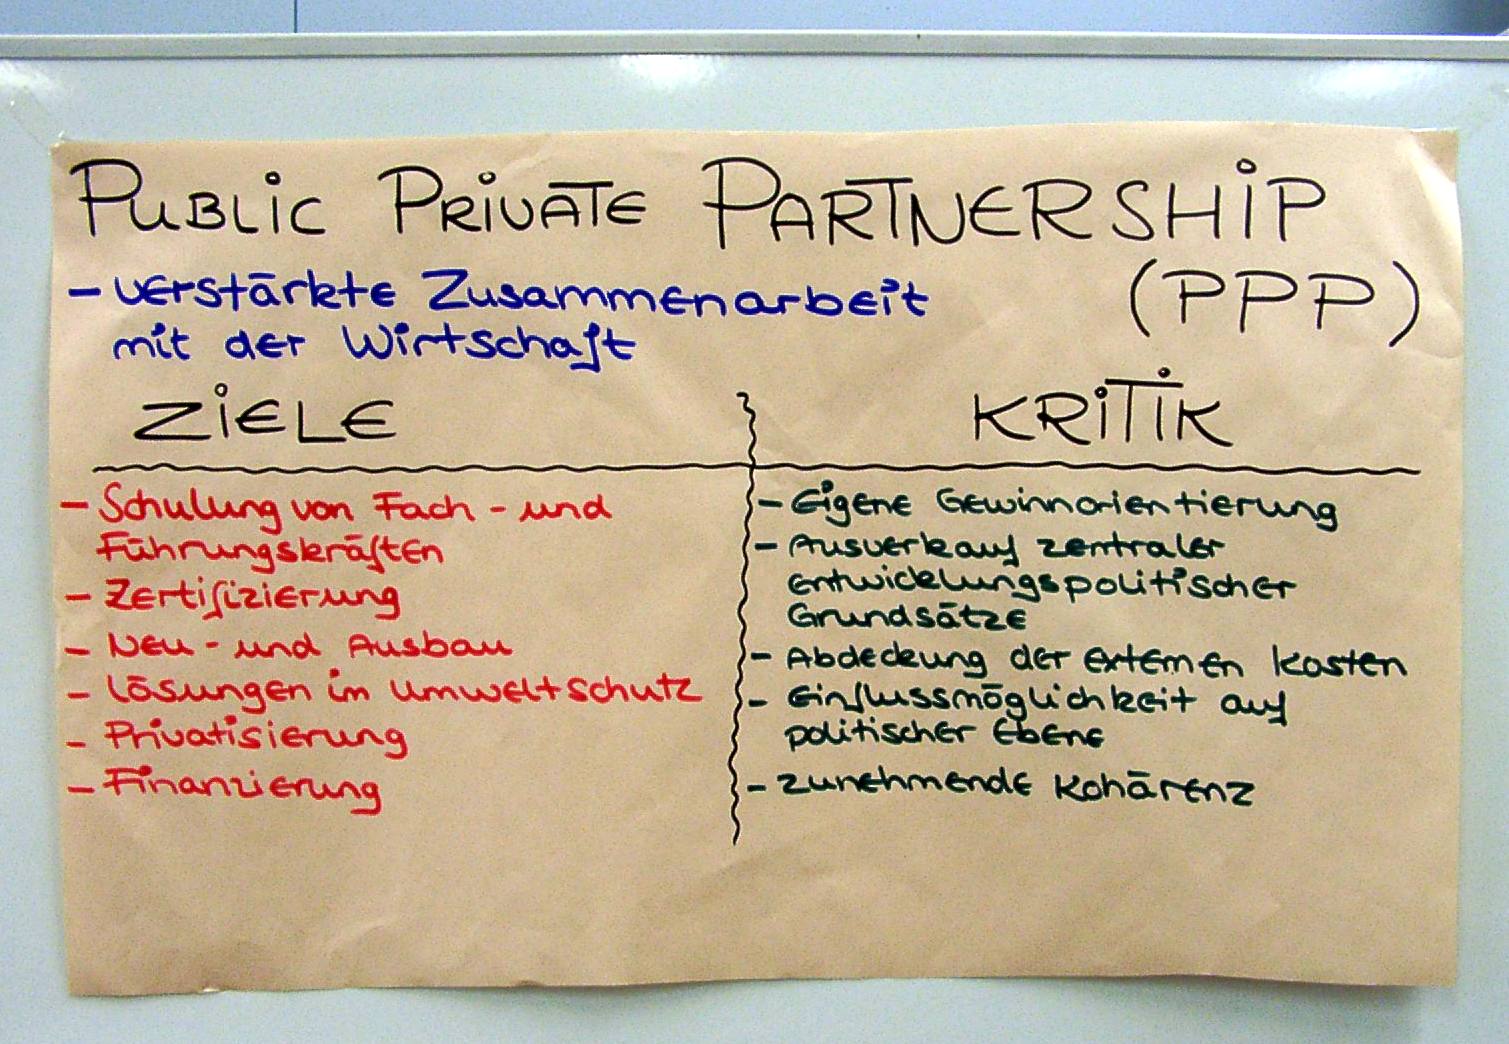 PUBLIC PRIVATE PARTNERSHIP
(PPP)
- verstärkte Zusammenarbeit
mit der Wirtschaft
ZIELE
- Schulung von Fach- und
Führungskräften
- Zertifizierung
- Neu- und Ausbau
- Lösungen im Umweltschutz
- Privatisierung
- Finanzierung
KRITIK
- Eigene Gewinnorientierung
- Ausverkauf zentraler
entwicklungspolitischer
Grundsätze
- Abdeckung der externen Kosten
- Einflussmöglichkeit auf
politischer Ebene
- zunehmende Kohärenz